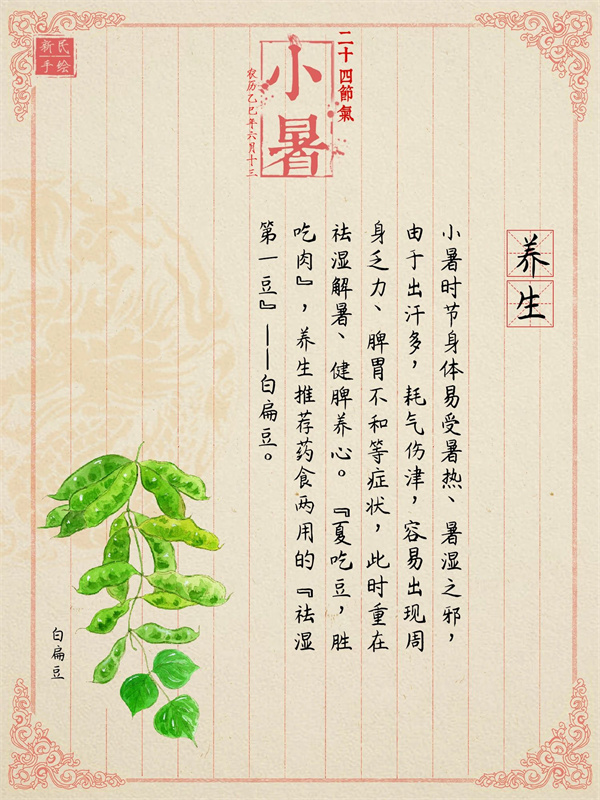 新民
手绘
二十四節氣
小暑
农历乙巳年六月十三
养生
小暑时节身体易受暑热、暑湿之邪，
由于出汗多，耗气伤津，容易出现周
身乏力、脾胃不和等症状，此时重在
祛湿解暑、健脾养心。『夏吃豆，胜
吃肉』，养生推荐药食两用的『祛湿
第一豆』——白扁豆。
白扁豆